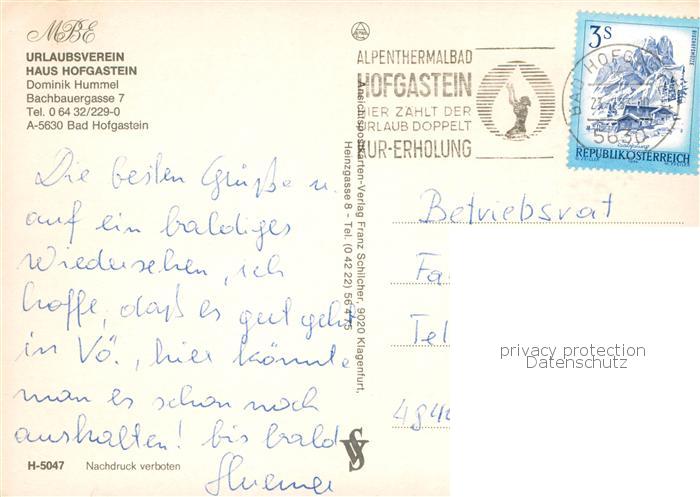 MBE
URLAUBSVEREIN
HAUS HOFGASTEIN
Dominik Hummel
Bachbauergasse 7
Tel. 0 64 32/229-0
A-5630 Bad Hofgastein
Die besten Grüße u.
auf ein baldiges
Wiedersehen, ich
hoffe, daß es gut geht
in Vö., hier könnte
man es schon noch
aushalten! bis bald
H-5047 Nachdruck verboten
Ansichtspostkarten-Verlag Franz Schilcher, 9020 Klagenfurt,
Heinzgasse 8 - Tel. (0 42 22) 56 4 75
ALPENTHERMALBAD
HOFGASTEIN
HIER ZÄHLT DER
URLAUB DOPPELT
KUR-ERHOLUNG
BAD HOFG
5630
3 S
BISCHOFSMÜTZE
REPUBLIK ÖSTERREICH
Betriebsrat
Fa
Tel
484
privacy protection
Datenschutz